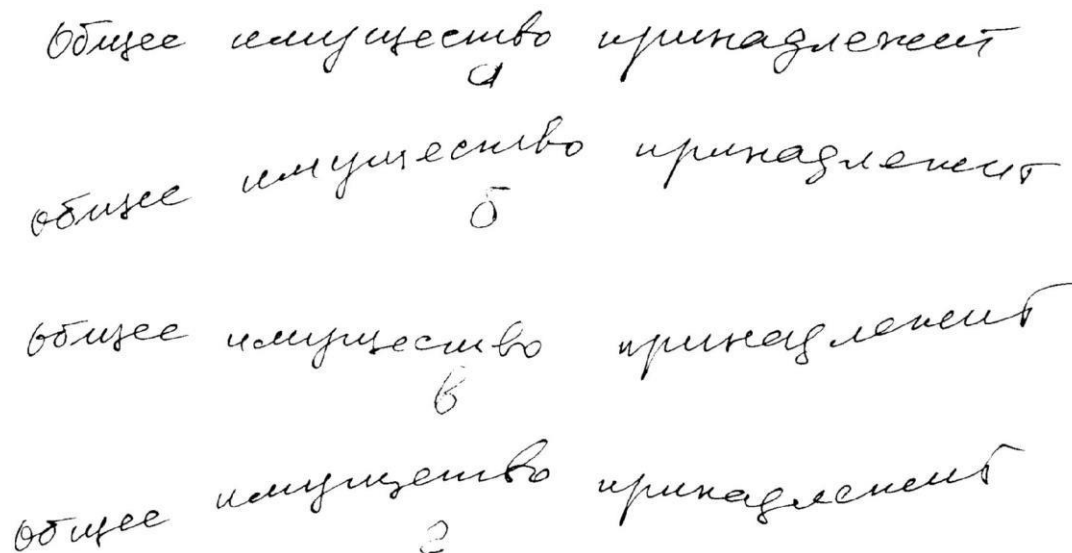 Общее имущество принадлежит
а
Общее имущество принадлежит
б
Общее имущество принадлежит
в
Общее имущество принадлежит
г